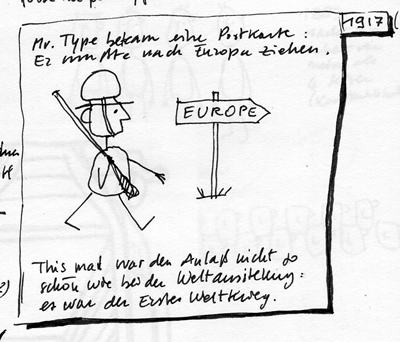 1917
Mr. Type bekam eine Postkarte:
Er mußte nach Europa ziehen.
EUROPE
This mal war den Anlaß nicht so
schön wie bei der Weltausstellung:
es war der Erster Weltkrieg.